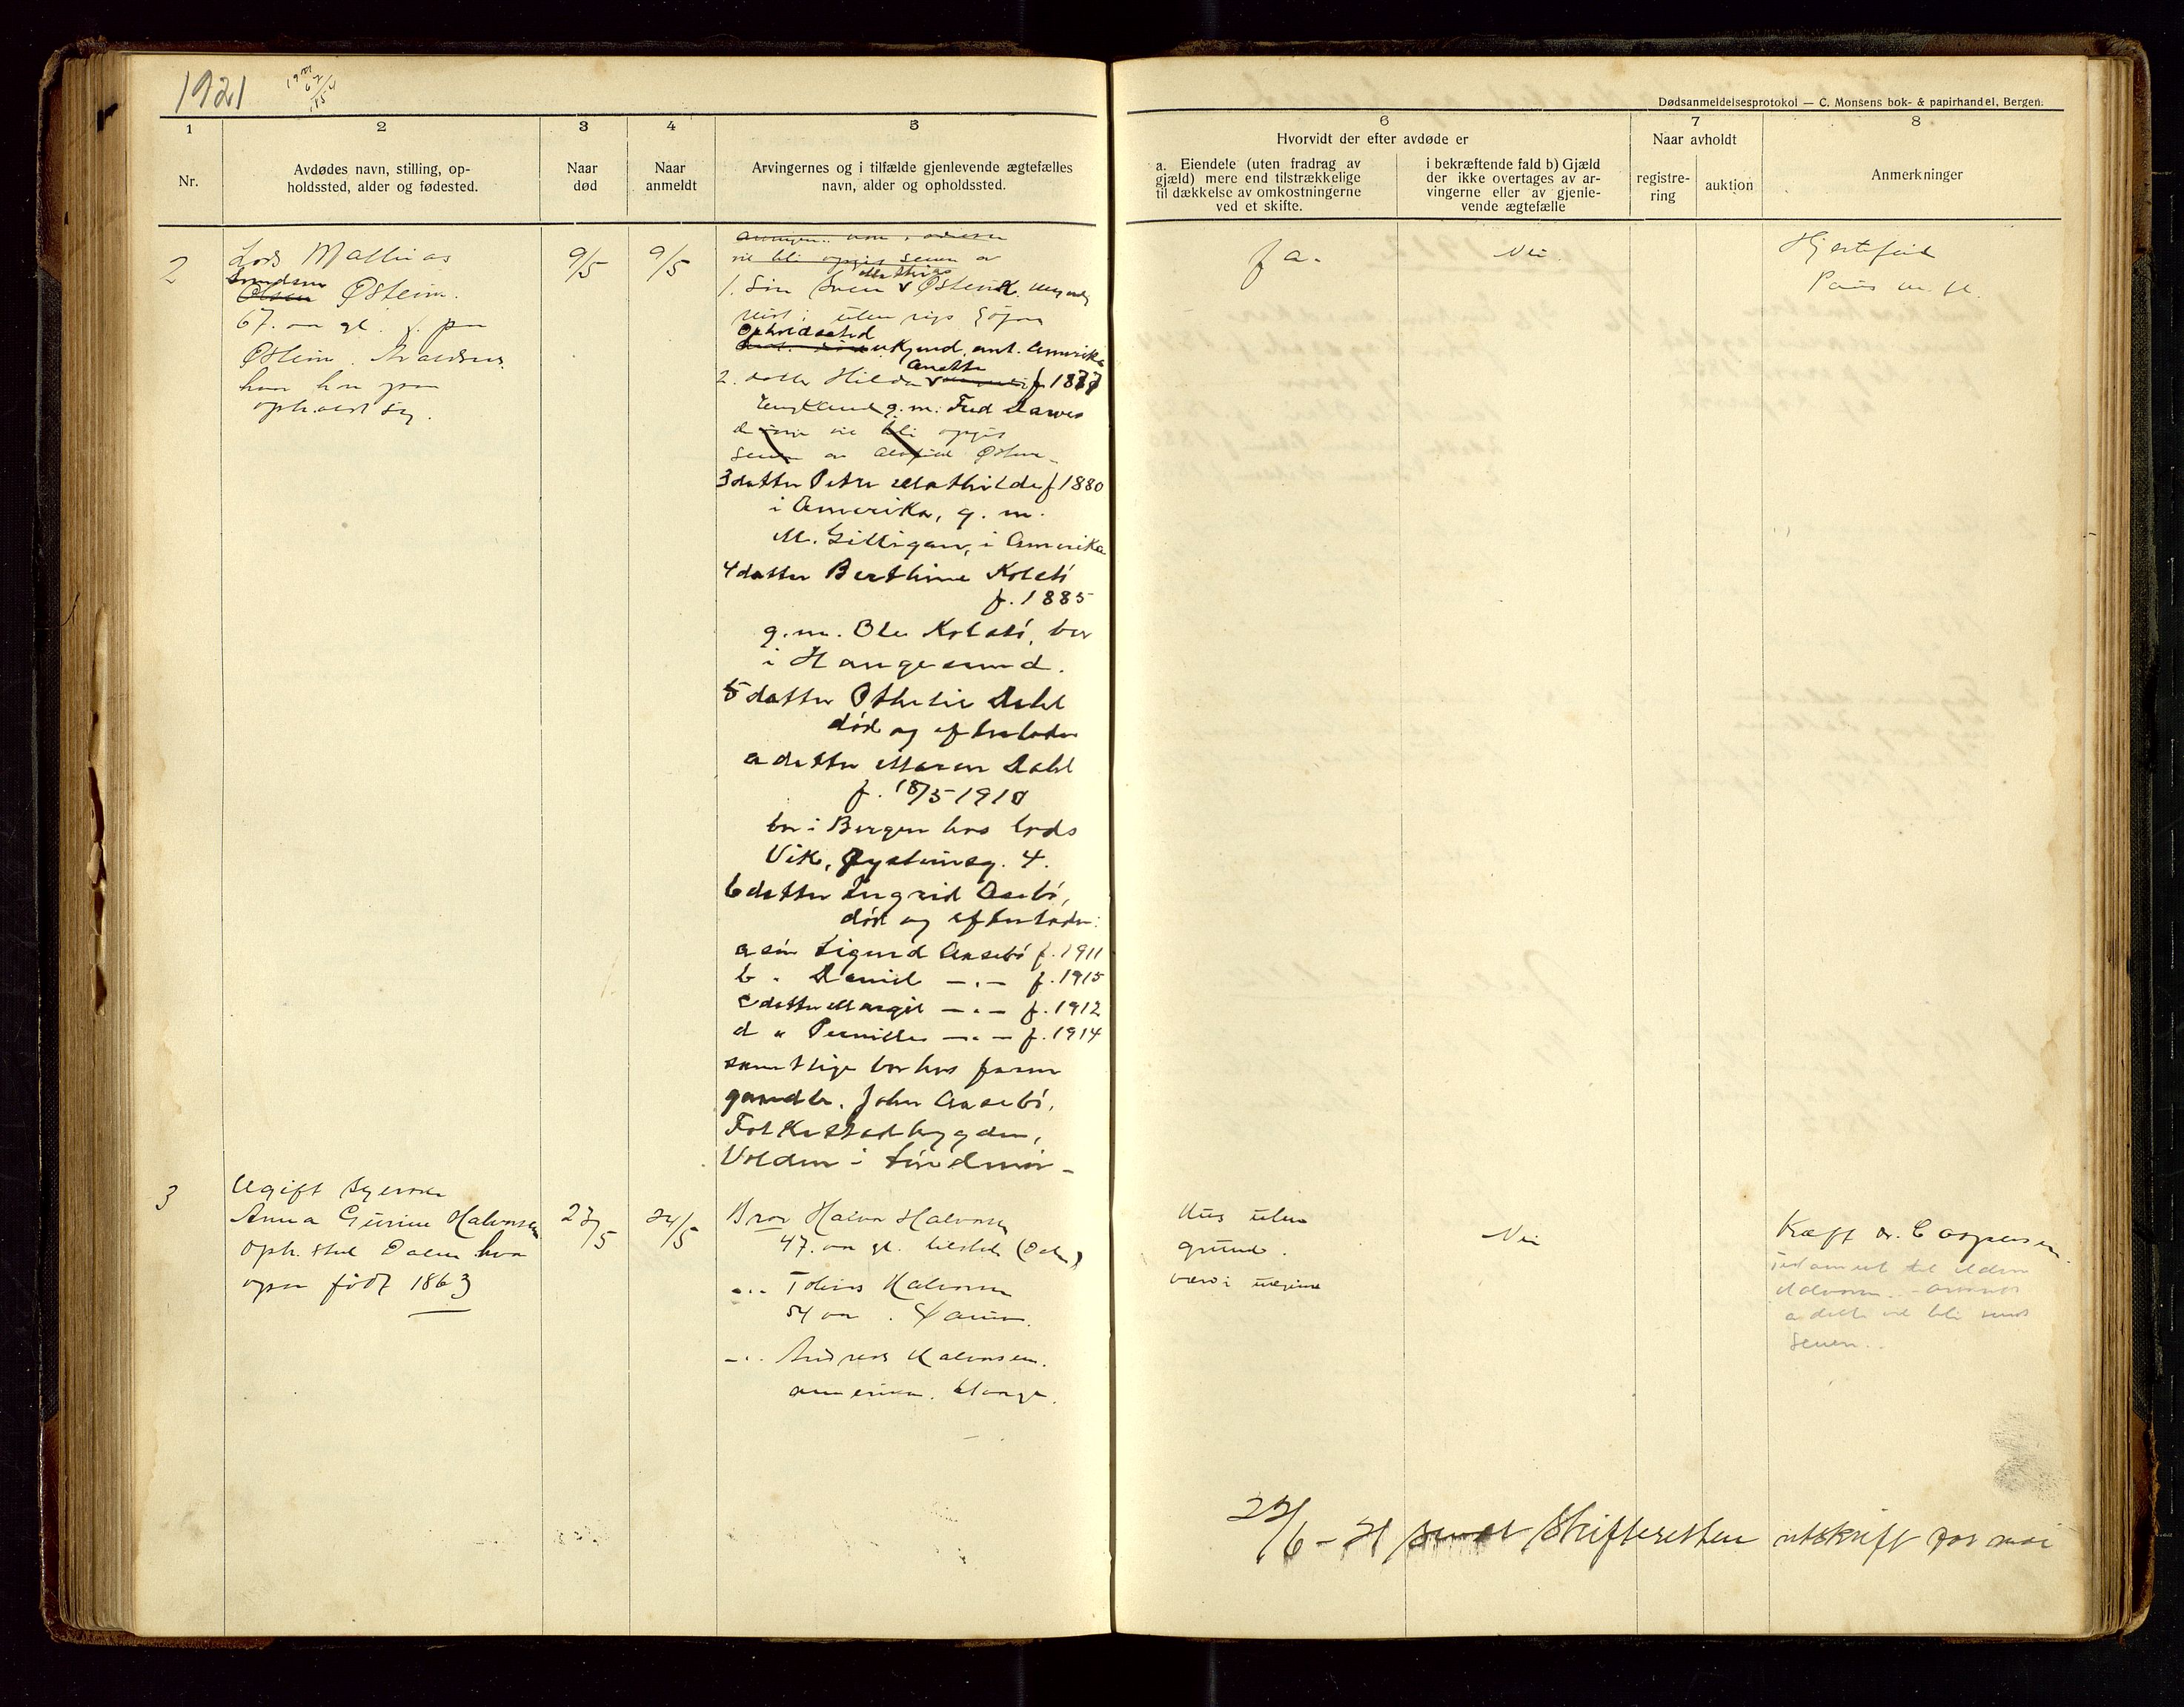 1921
Dødsanmeldelsesprotokol — C. Monsens bok- & papirhandel, Bergen.
1
2
3
4
5
6
7
8
Nr.
Avdødes navn, stilling, op-
holdssted, alder og fødested.
Naar
død
Naar
anmeldt
Arvingernes og i tilfælde gjenlevende ægtefælles
navn, alder og opholdssted.
Hvorvidt der efter avdøde er
a. Eiendele (uten fradrag av
gjæld) mere end tilstrækkelige
til dækkelse av omkostningerne
ved et skifte.
i bekræftende fald b) Gjæld
der ikke overtages av ar-
vingerne eller av gjenle-
vende ægtefælle
Naar avholdt
registre-
ring
auktion
Anmerkninger
2
Lods Mathias
Olsen Østeim.
67. aa gl. f. paa
Østeim.
han
oph.
9/5
9/5
vil bli opgit senere av
1. Sön Sven Mathias Østeim
utenrigs
Opholdssted
ukjend, ant. Amerika
2. datter Hilda Anette f 1877
England g.m. Fred Dawes
vil bli opgit
3 datter Petra Mathilde f 1880
i Amerika, g. m.
M. Gilligan, i Amerika
4 datter Berthine Kolstö
f. 1885
g.m. Ole Kolstö, bor
i Haugesund.
5 datter Othelie Dahl
död og efterlader
a datter Maren Dahl
f. 18/5 1910
bor i Bergen hos lods
Vik, Øysteinsg. 4.
6 datter Ingrid Aasebö,
död og efterlader:
a sön Sigurd Aasebö f. 1911
b " Daniel — " — f. 1915
c datter Margit — " — f. 1912
d " Pernille — " — f. 1914
samtlige bor hos faren
gaardbr. John Aasebö,
Folkestadbygden,
Volden i Söndmör —
Ja.
Nei.
3
Ugift
Anna Gurine Halvorsen
oph. sted Dalen
født 1863
23/5
24/5
Bror Halvor Halvorsen
47. aa gl.
" Tobias Halvorsen
54 aa
" Andreas Halvorsen.
amerika.
Hus uten
grund.
Nei
vil bli sendt
senere.
22/6 - 21 sendt Skifteretten utskrift for mai